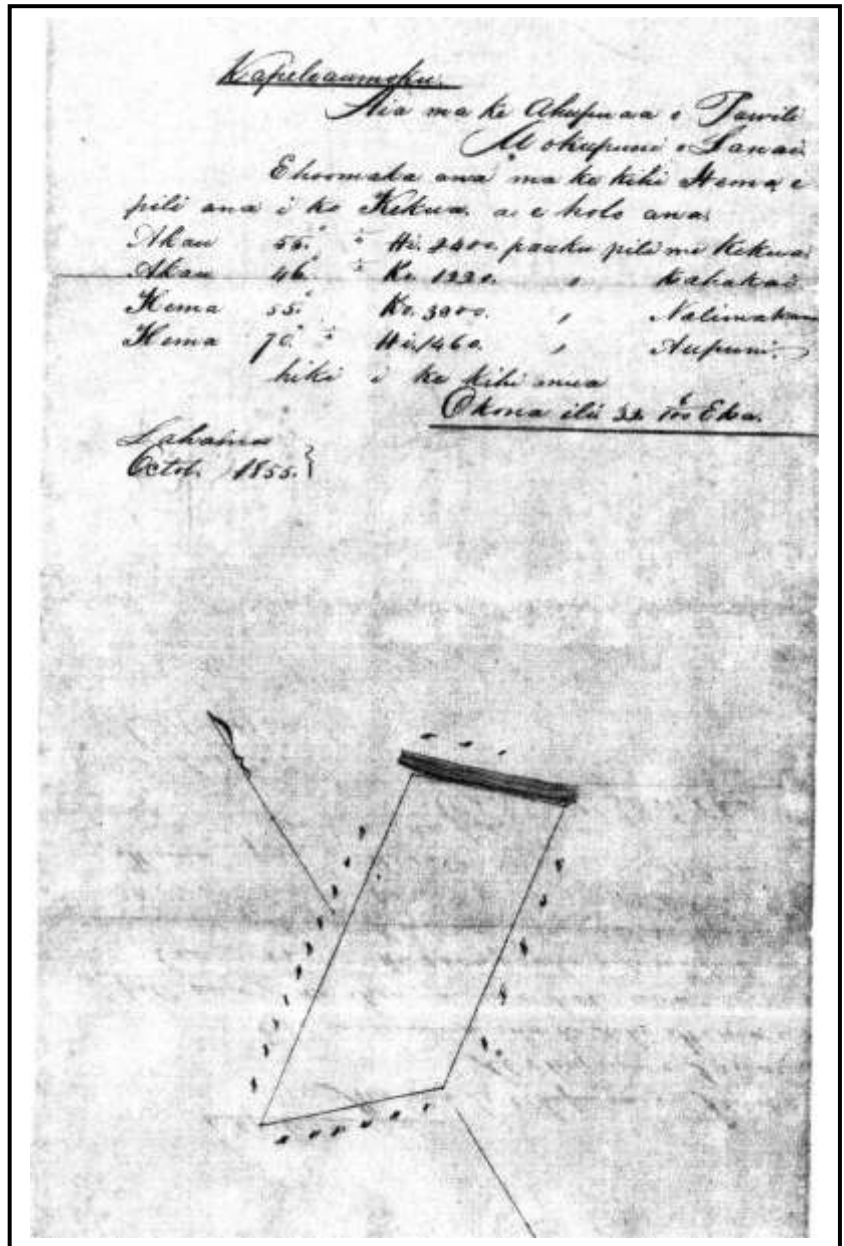 Kapeleaumoku.
Aia ma ke Ahupuaa o Pawili
Mokupuni o Lanai.
E hoomaka ana ma ke kihi Hema e
pili ana i ko Kekua. a e holo ana.
Akau 55.° Hi. 2400. pauku pili me Kekua.
Akau 46° Ko. 1220. " Kahakai
Hema 55.° Ko. 3000. "
Hema 70.° Hi. 1460. " Aupuni.
hiki i ke kihi mua
Okona ili 33 Eka.
Lahaina
Octob. 1855.